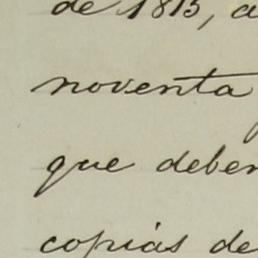 de 1815, a
noventa
que deben
copias de